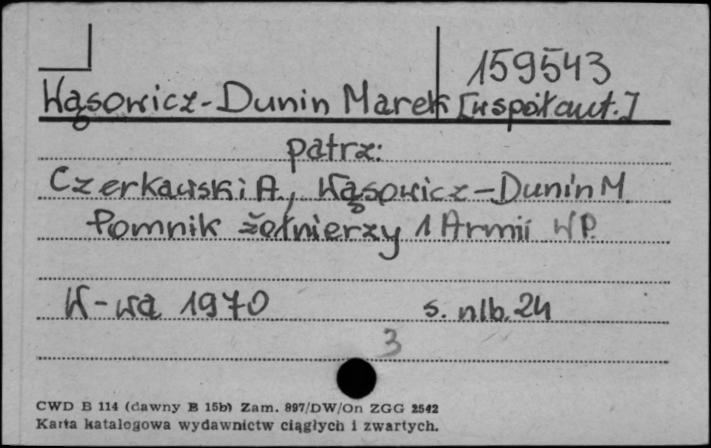 159543
Wąsowicz-Dunin Marek [współaut.]
patrz:
Czerkawski A., Wąsowicz-Dunin M.
Pomnik żołnierzy 1 Armii WP.
W-wa 1970 s. nlb. 24
3
CWD B 114 (dawny B 15b) Zam. 897/DW/On ZGG 2542
Karta katalogowa wydawnictw ciągłych i zwartych.